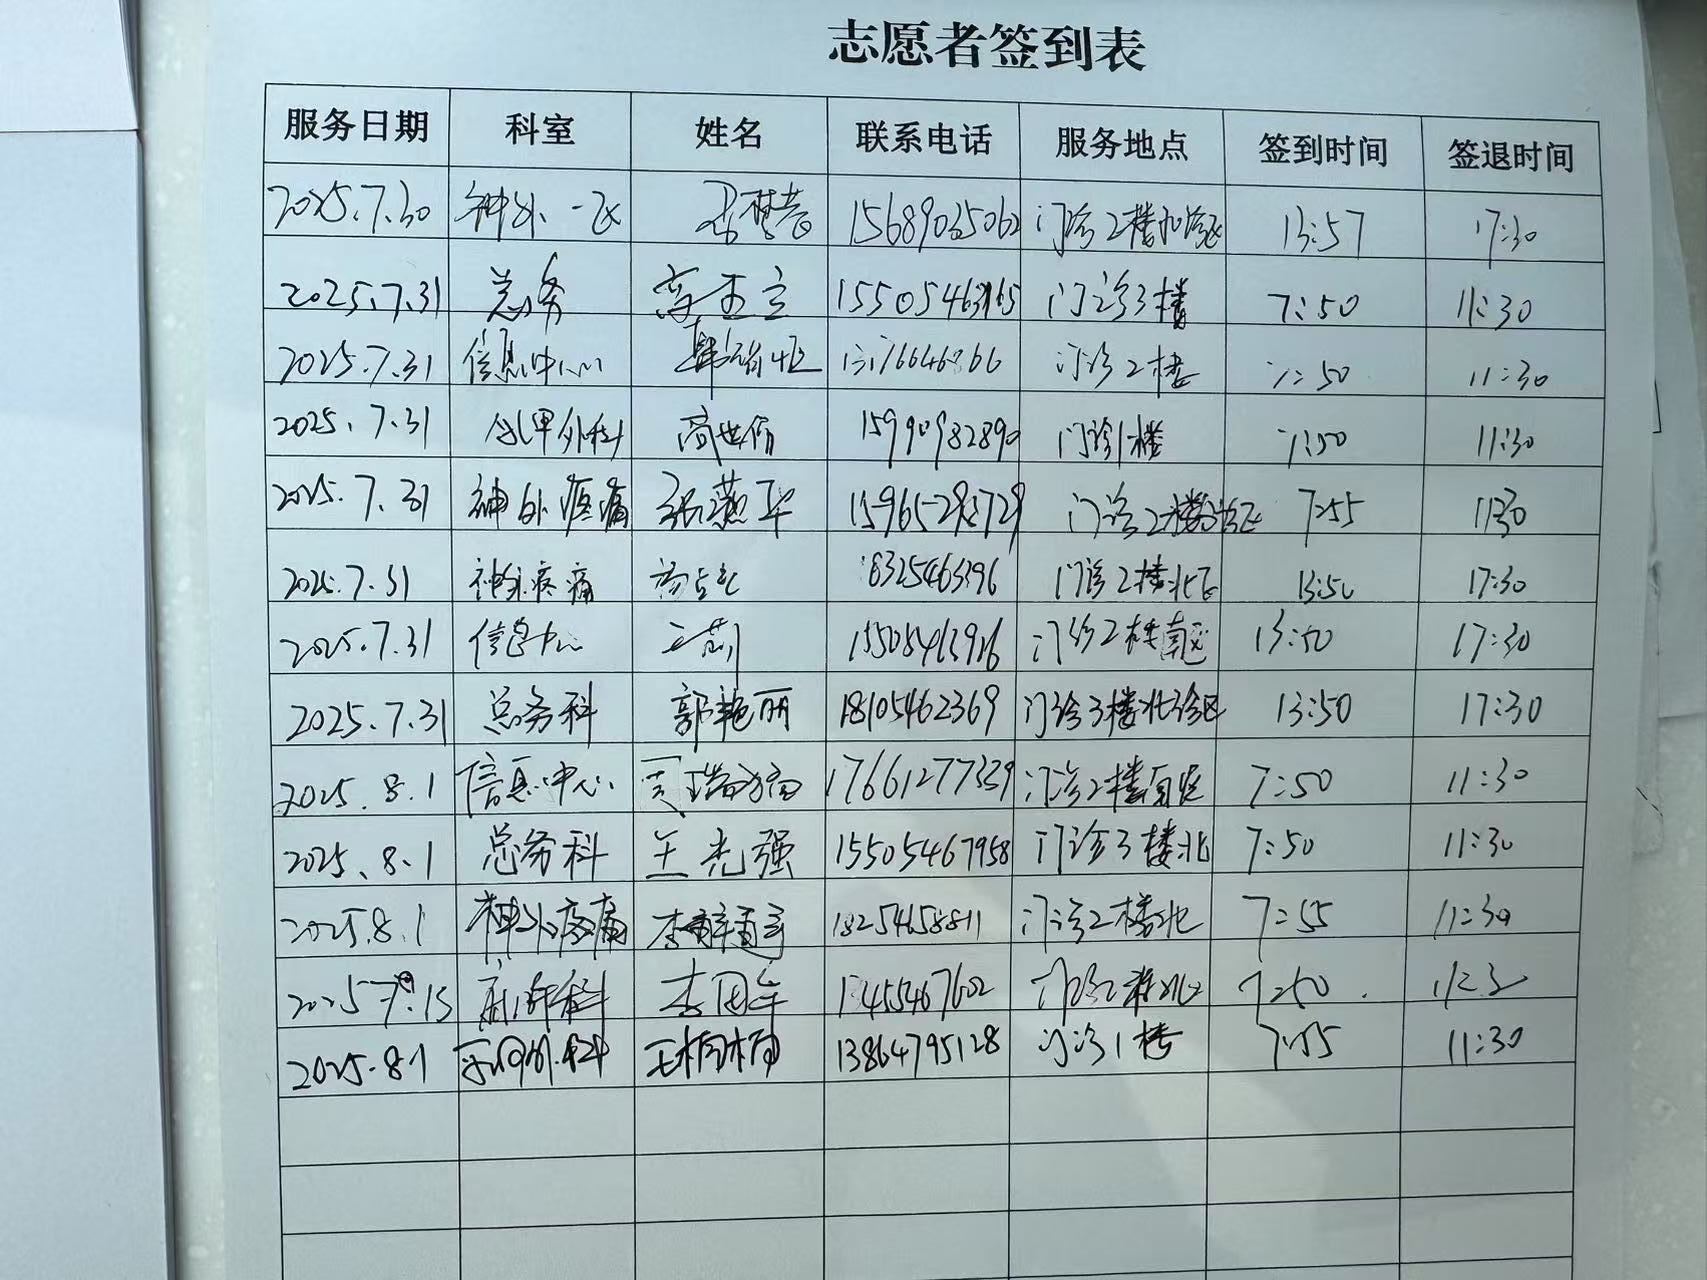 志愿者签到表
服务日期 科室 姓名 联系电话 服务地点 签到时间 签退时间
2025.7.30 神外一区 15689035062 门诊2楼北诊区 13:57 17:30
2025.7.31 总务 李玉立 15505463165 门诊3楼 7:50 11:30
2025.7.31 信息中心 门诊2楼 7:50 11:30
2025.7.31 外科 15990982890 门诊1楼 7:50 11:30
2025.7.31 神外疼痛 张燕华 门诊2楼 7:55 11:30
2025.7.31 神外疼痛 门诊2楼北区 13:50 17:30
2025.7.31 信息中心 王莉 门诊2楼南区 13:50 17:30
2025.7.31 总务科 郭艳丽 18105462369 门诊3楼北诊区 13:50 17:30
2025.8.1 信息中心 17661277339 门诊2楼南区 7:50 11:30
2025.8.1 总务科 王光强 15505467958 门诊3楼北 7:50 11:30
2025.8.1 神外疼痛 18254658811 门诊2楼北 7:55 11:30
2025 科 李国华 门诊2楼北 7:50
2025.8.1 13864795128 门诊1楼 7:55 11:30